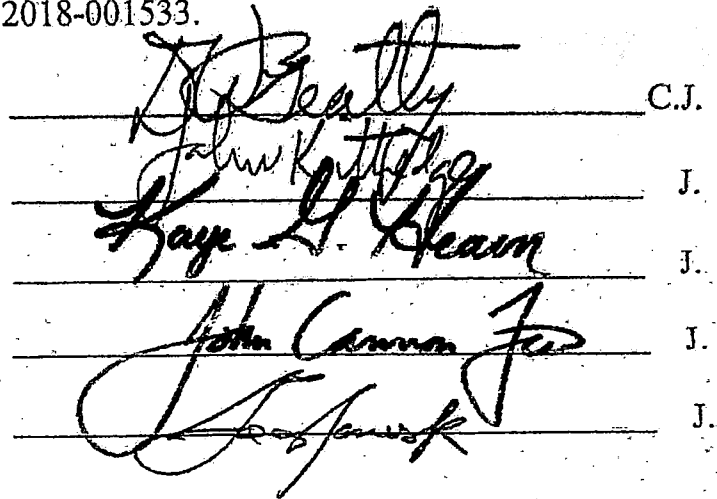 2018-001533.
Beatty C.J.
John Kittredge J.
Kaye G. Hearn J.
John Cannon Few J.
Geo James Jr J.